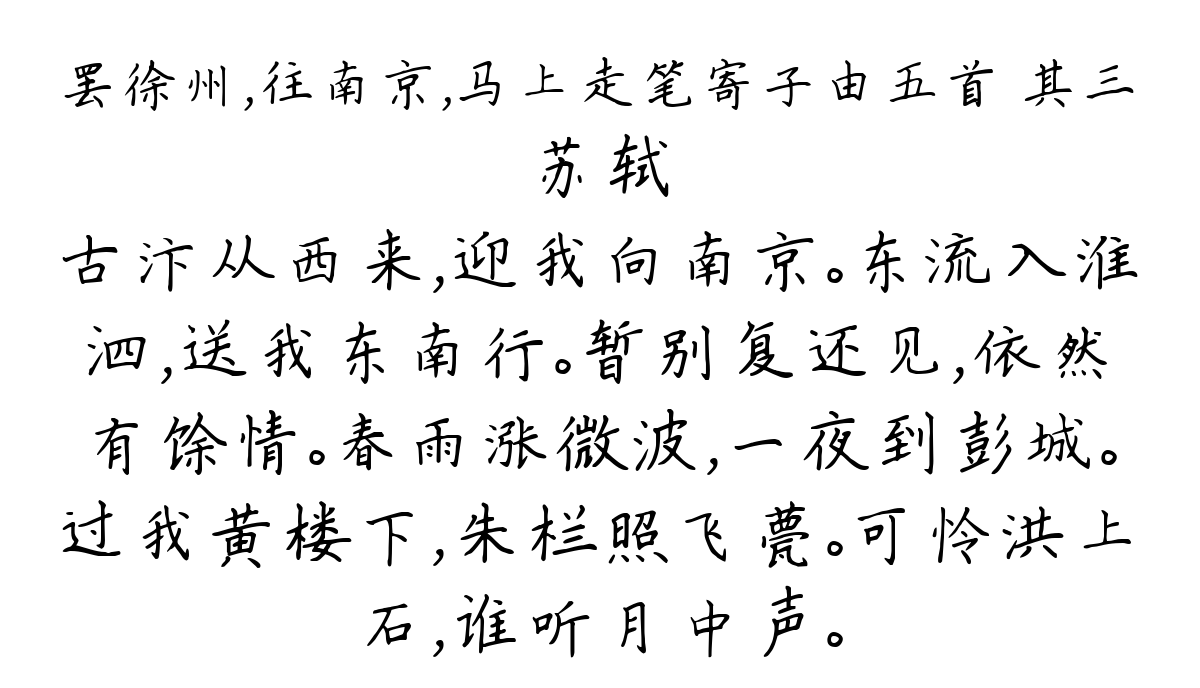 罢徐州,往南京,马上走笔寄子由五首 其三
苏轼
古汴从西来,迎我向南京。东流入淮
泗,送我东南行。暂别复还见,依然
有馀情。春雨涨微波,一夜到彭城。
过我黄楼下,朱栏照飞甍。可怜洪上
石,谁听月中声。